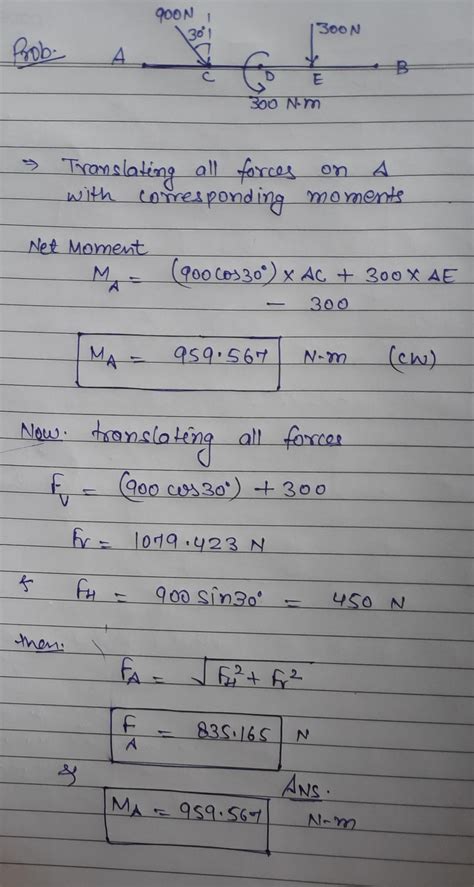 900N
30°
300N
Prob. A C D E B
300 N-m
⇒ Translating all forces on A
with corresponding moments
Net Moment
M_A = (900cos30°) × AC + 300 × AE
- 300
M_A = 959.567 N-m (CW)
Now. translating all forces
F_V = (900 cos30°) + 300
Fv = 1079.423 N
& F_H = 900 sin30° = 450 N
then.
F_A = √F_H² + F_V²
F_A = 835.165 N
& ANS.
M_A = 959.567 N-m